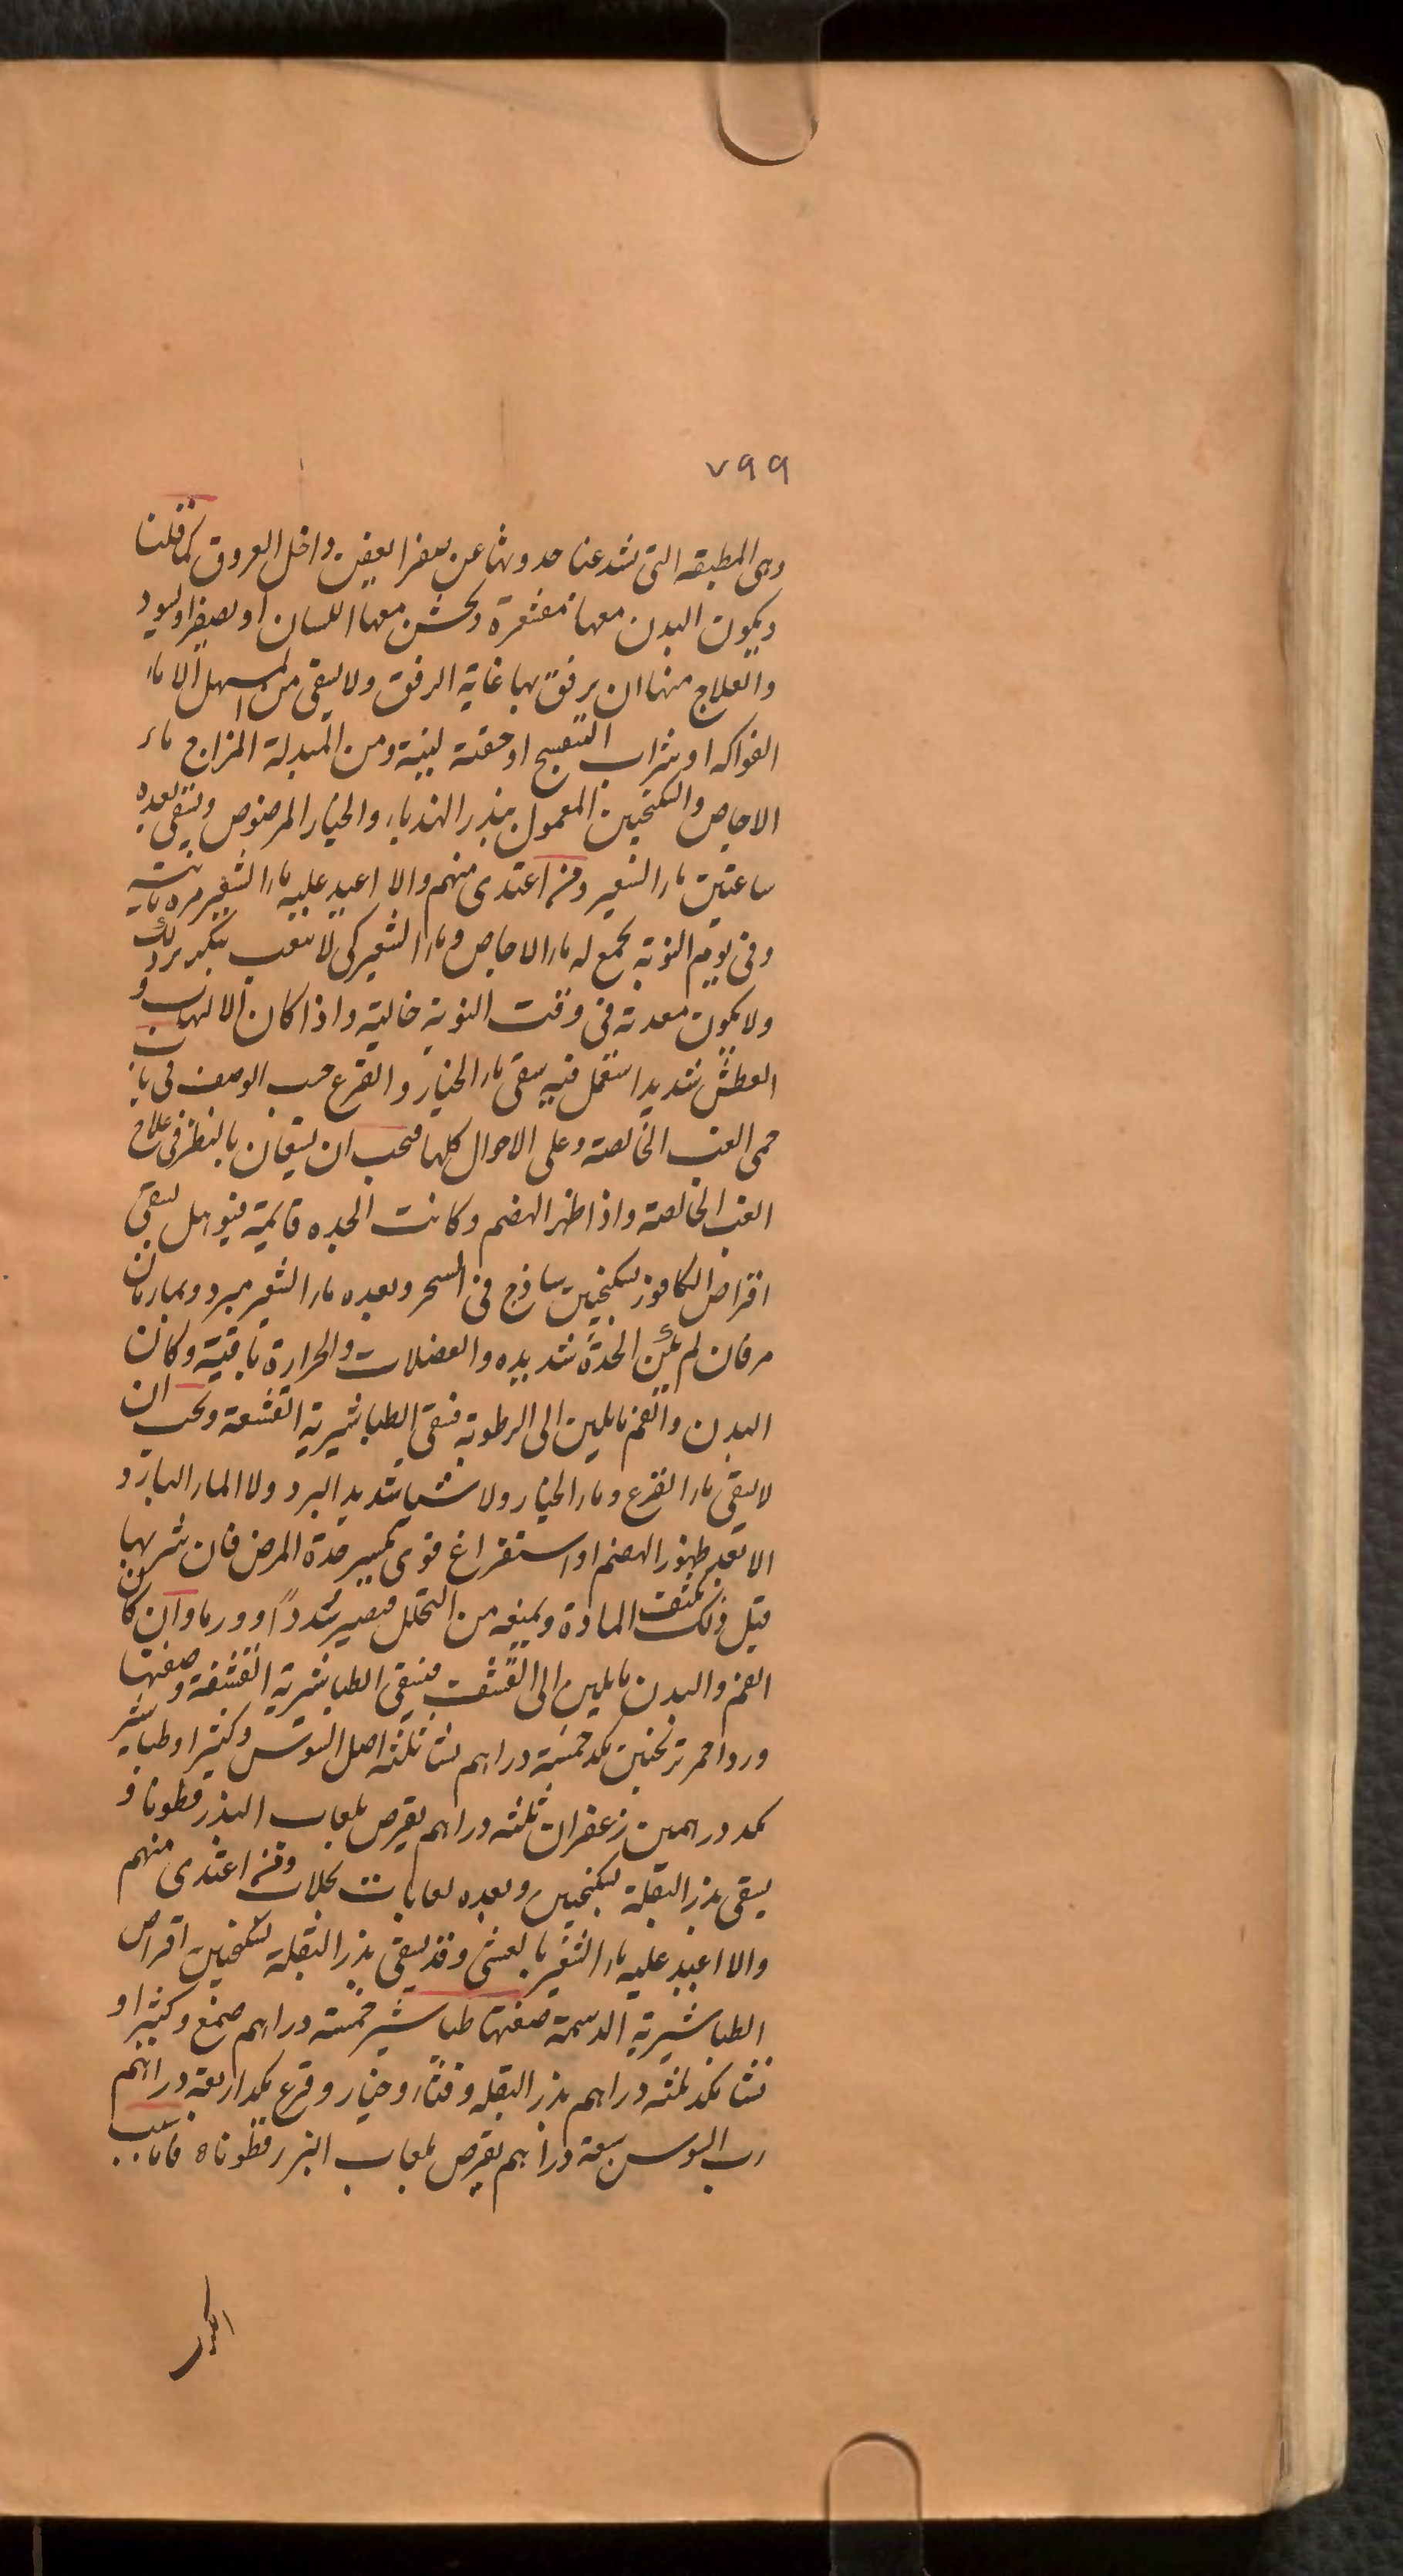 ٧٩٩
وهى المطبقه التى تشد غبا حدوثها عن صفرا بعض داخل العروق كما قلنا
ويكون البدن معها مقشعرة ويخشن معها اللسان او يصفر او يسود
والعلاج منها ان يرفق بها غاية الرفق ولا يسقى من المسهل الا ماء
الفواكه او شراب البنفسج او حقنة لينة ومن المبدلة المزاج ماء
الاجاص والسكنجبين المعمول ببذر الهندباء والخيار المرضوض ويسقى بعده
ساعتين ماء الشعير ومن اغتدى منهم والا اعيد عليه ماء الشعير مرة ثانية
وفى يوم النوبة يجمع له ماء الاجاص وماء الشعير كى لا يتعب بتكرير ذلك
ولا يكون معدته فى وقت النوبة خالية واذا كان الالتهاب و
العطش شديدا استعمل فيه سقى ماء الخيار والقرع حسب الوصف فى باب
حمى الغب الخالصة وعلى الاحوال كلها فيجب ان يستعان بالنظر فى علاج
الغب الخالصة واذا ظهر الهضم وكانت الحده قايمة فيوهل لسقى
اقراص الكافور بسكنجبين ساذج فى السحر وبعده ماء الشعير مبرد وبماء رمان
مر فان لم يكن الحدة شديده والعضلات والحرارة باقية وكان
البدن والفم مايلين الى الرطوبة فيسقى الطباشيرية القشعة ويجب ان
لا يسقى ماء القرع وماء الخيار ولا شيا شديد البرد ولا الماء البارد
الا بعد ظهور الهضم او استفراغ قوى يكسر حدة المرض فان شربها
قبل ذلك يكثف المادة ويمنعه من التحلل فيصير سددا او ورما وان كان
الفم والبدن مايلين الى القشف فيسقى الطباشيرية القشفة وصفتها
ورد احمر ترنجبين بكد خمسة دراهم نشا ثلثه اصل السوس وكثيرا وطباشير
بكد درهمين زعفران ثلثه دراهم يقرص بلعاب البذر قطونا و
يسقى بذر البقلة بسكنجبين وبعده لعابات بجلاب ومن اغتدى منهم
والا اعيد عليه ماء الشعير بالعشى وقد يسقى بذر البقلة بسكنجبين اقراص
الطباشيرية الدسمة صفتها طباشير خمسة دراهم صمغ وكثيرا و
نشا بكد ثلثه دراهم بذر البقله وقثاء وخيار وقرع بكد اربعة دراهم
رب السوس سبعة دراهم يقرص بلعاب البزر قطونا ه فاما سبب